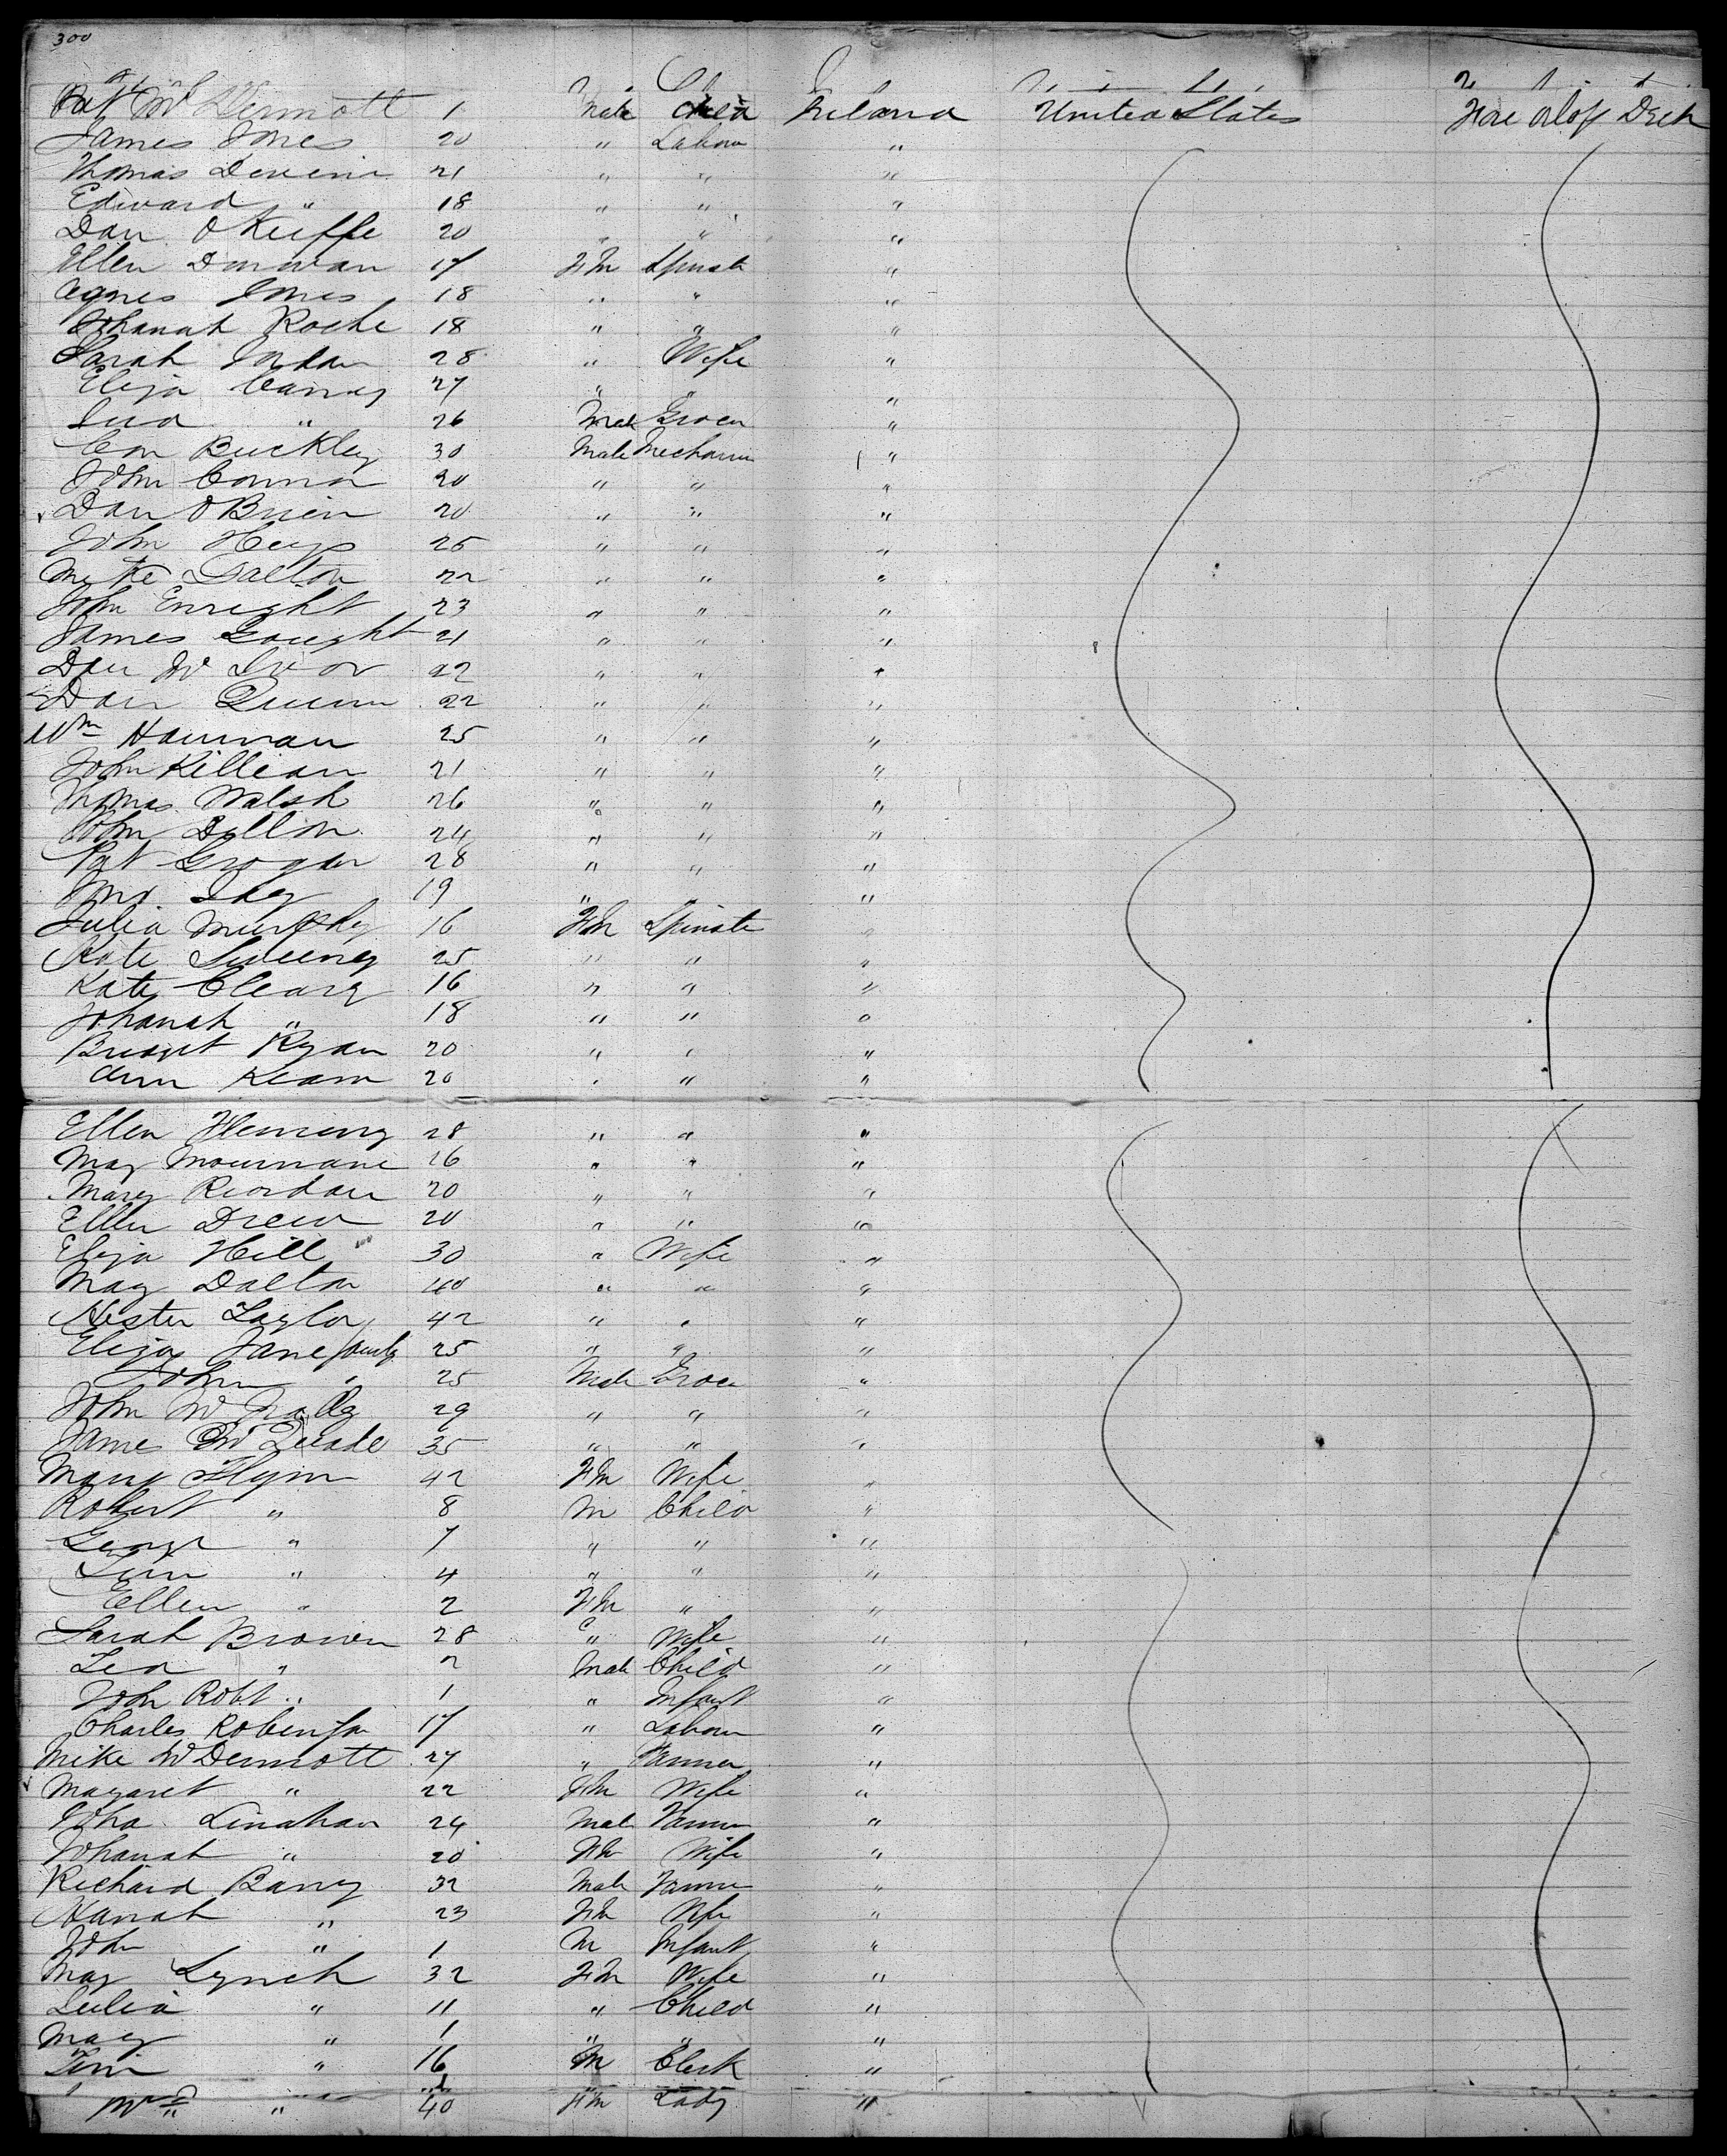 300
Pat McDermott 1 Male Child Ireland United States Fore Orlop Deck
James Jones 20 " Labour "
Thomas Devine 21 " " "
Edward " 18 " " "
Dan O Keiffe 20 " " "
Ellen Donovan 17 FM Spinster "
Agnes Jones 18 " " "
Johanah Roche 18 " " "
Sarah Jordan 28 " Wife "
Eliza Canny 27 " " "
" 26 Male Grocer "
Con Buckley 30 Male Mechanic "
John Connor 20 " " "
Dan O Brien 20 " " "
John Heys 25 " " "
Mike Dalton 22 " " "
John Enright 23 " " "
James Gought 21 " " "
Dan Mc Ivor 22 " " "
Dan Quinn 22 " " "
Wm Hannan 25 " " "
John Killian 21 " " "
Thomas Walsh 26 " " "
John Dillon 24 " " "
Pat Grogan 28 " " "
19 " "
Julia Murphy 16 FM Spinster "
Kate Sweeney 25 " " "
Kate Cleary 16 " " "
Johanah " 18 " " "
Bridget Ryan 20 " " "
Ann Keam 20 " " "
Ellen Fleming 28 " " "
May Mournane 26 " " "
Mary Riordan 20 " " "
Ellen Drew 20 " " "
Eliza Hill 30 " Wife "
May Dalton 40 " " "
Hester Taylor 42 " " "
Eliza Jane 25 " " "
John " 25 Male Grocer "
John Mc 29 " " "
James Mc Quade 35 " " "
Mary Flynn 42 FM Wife "
Robert " 8 M Child "
George " 7 " " "
Tim " 4 " " "
Ellen " 2 FM " "
Sarah Brown 28 " Wife "
" 2 Male Child "
John Robt " 1 " Infant "
Charles Robinson 17 " Labour "
Mike McDermott 27 " Farmer "
Magaret " 22 FM Wife "
John Linahan 24 Male Farmer "
Johanah " 20 FM Wife "
Richard Barry 32 Male Farmer "
Hanah " 23 FM Wife "
John " 1 M Infant "
May Lynch 32 FM Wife "
Julia " 11 " Child "
May " 1 " " "
Tim " 16 M Clerk "
Mrs " 40 FM Lady "